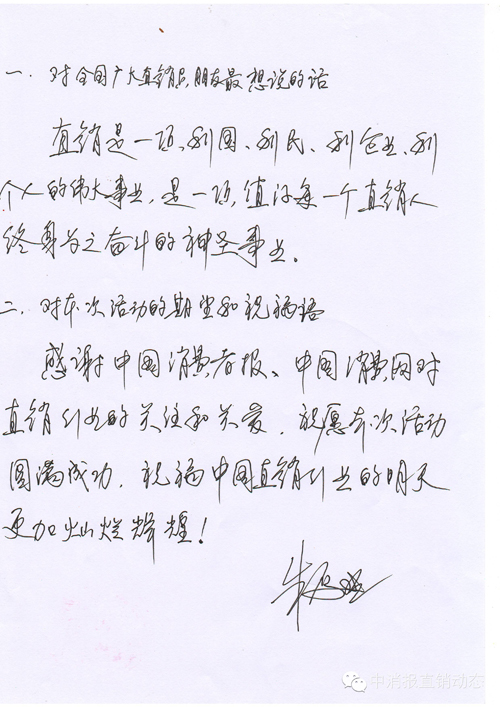 一. 对全国广大直销员朋友最想说的话
直销是一项利国、利民、利企业、利
个人的伟大事业,是一项值得每一个直销人
终身为之奋斗的神圣事业.
二. 对本次活动的期望和祝福语
感谢中国消费者报、中国消费网对
直销行业的关注和关爱.祝愿本次活动
圆满成功.祝福中国直销行业的明天
更加灿烂辉煌!
中消报直销动态